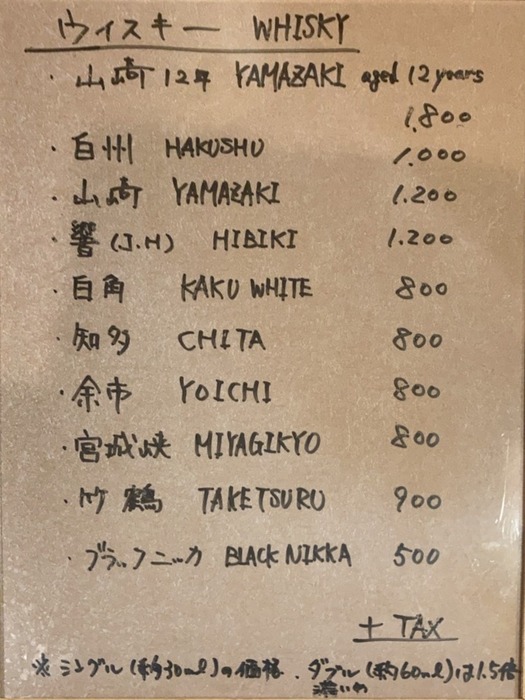 ウイスキー WHISKY
・山崎12年 YAMAZAKI aged 12 years
1.800
・白州 HAKUSHU 1.000
・山崎 YAMAZAKI 1.200
・響(J.H) HIBIKI 1.200
・白角 KAKU WHITE 800
・知多 CHITA 800
・余市 YOICHI 800
・宮城峡 MIYAGIKYO 800
・竹鶴 TAKETSURU 900
・ブラックニッカ BLACK NIKKA 500
+ TAX
※シングル(約30ml)の価格、ダブル(約60ml)は1.5倍
濃いめ